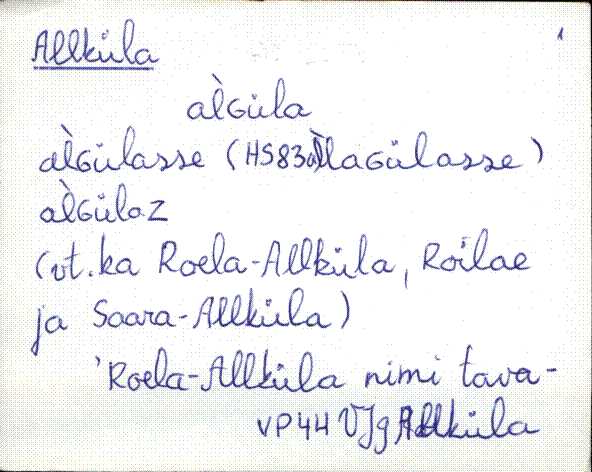 Allküla 1
àlGüla
àlGülasse (HS83 àllaGülasse)
àlGülaz
(vt. ka Roela-Allküla, Roilae
ja Saara-Allküla)
'Roela-Allküla nimi tava-
VP44 VJg Allküla